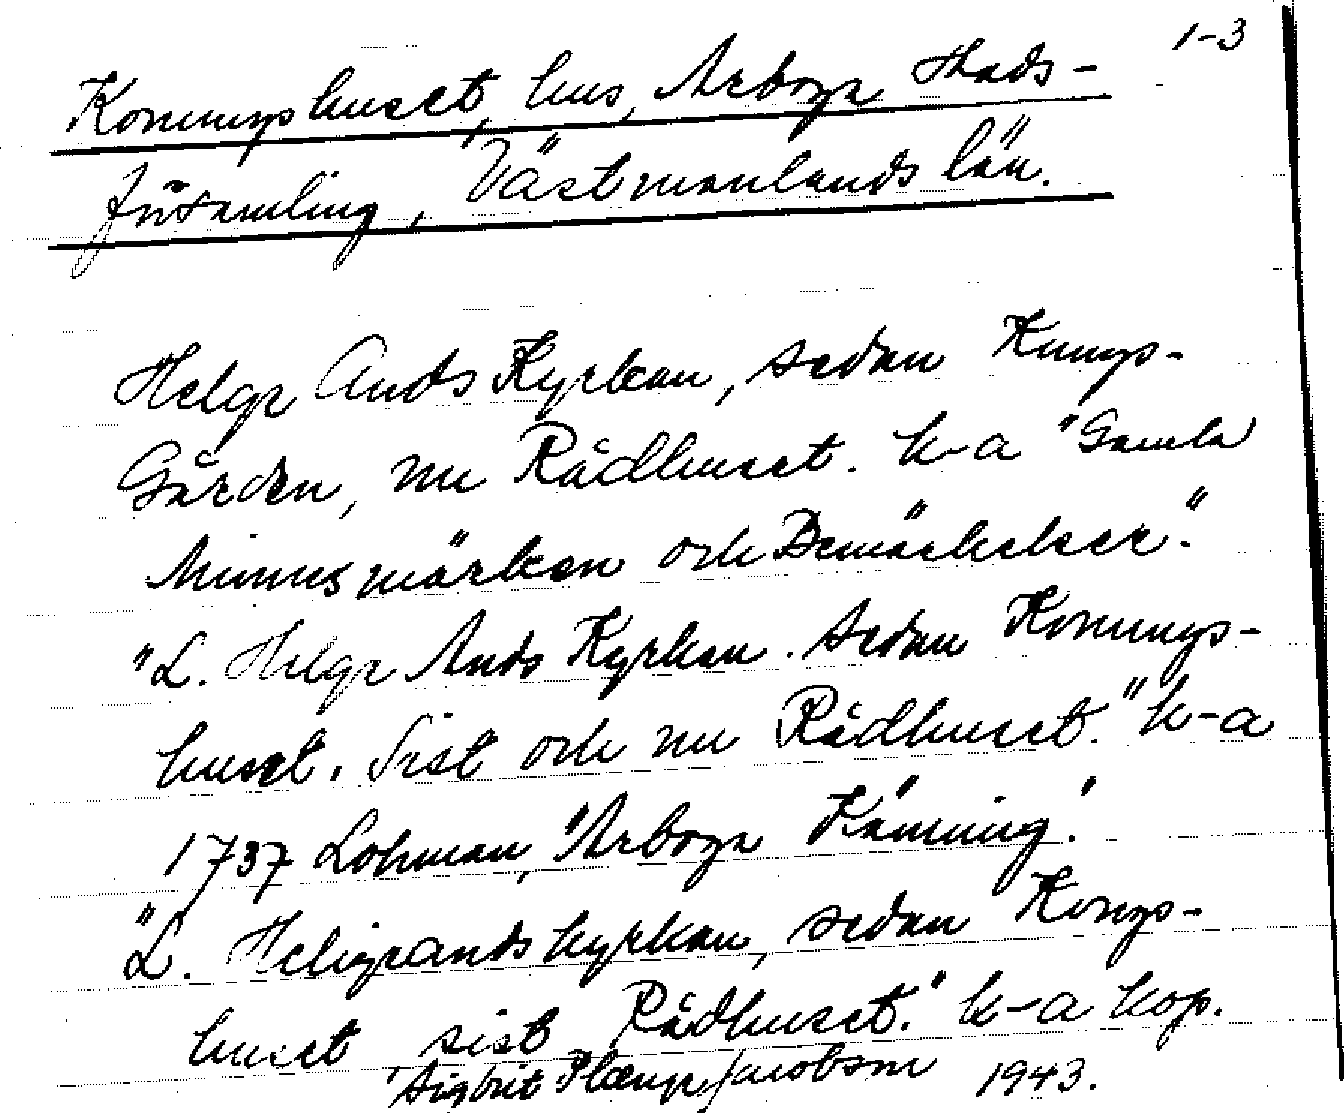 1-3
Konungshuset, hus, Arboga Stads-
församling, Västmanlands län.
Helga Ands Kyrkan, sedan Kungs-
Gården, nu Rådhuset. k-a "Gamla
Minnesmärken och Bemärkelser."
"L. Helga Ands Kyrkan. Sedan Konungs-
huset. Sist och nu Rådhuset." k-a
1737 Lohman, "Arboga Känning."
"L. Heligeandskyrkan, sedan Kongs-
huset sist Rådhuset." k-a kop.
Sigbrit Plænge Jacobson 1943.